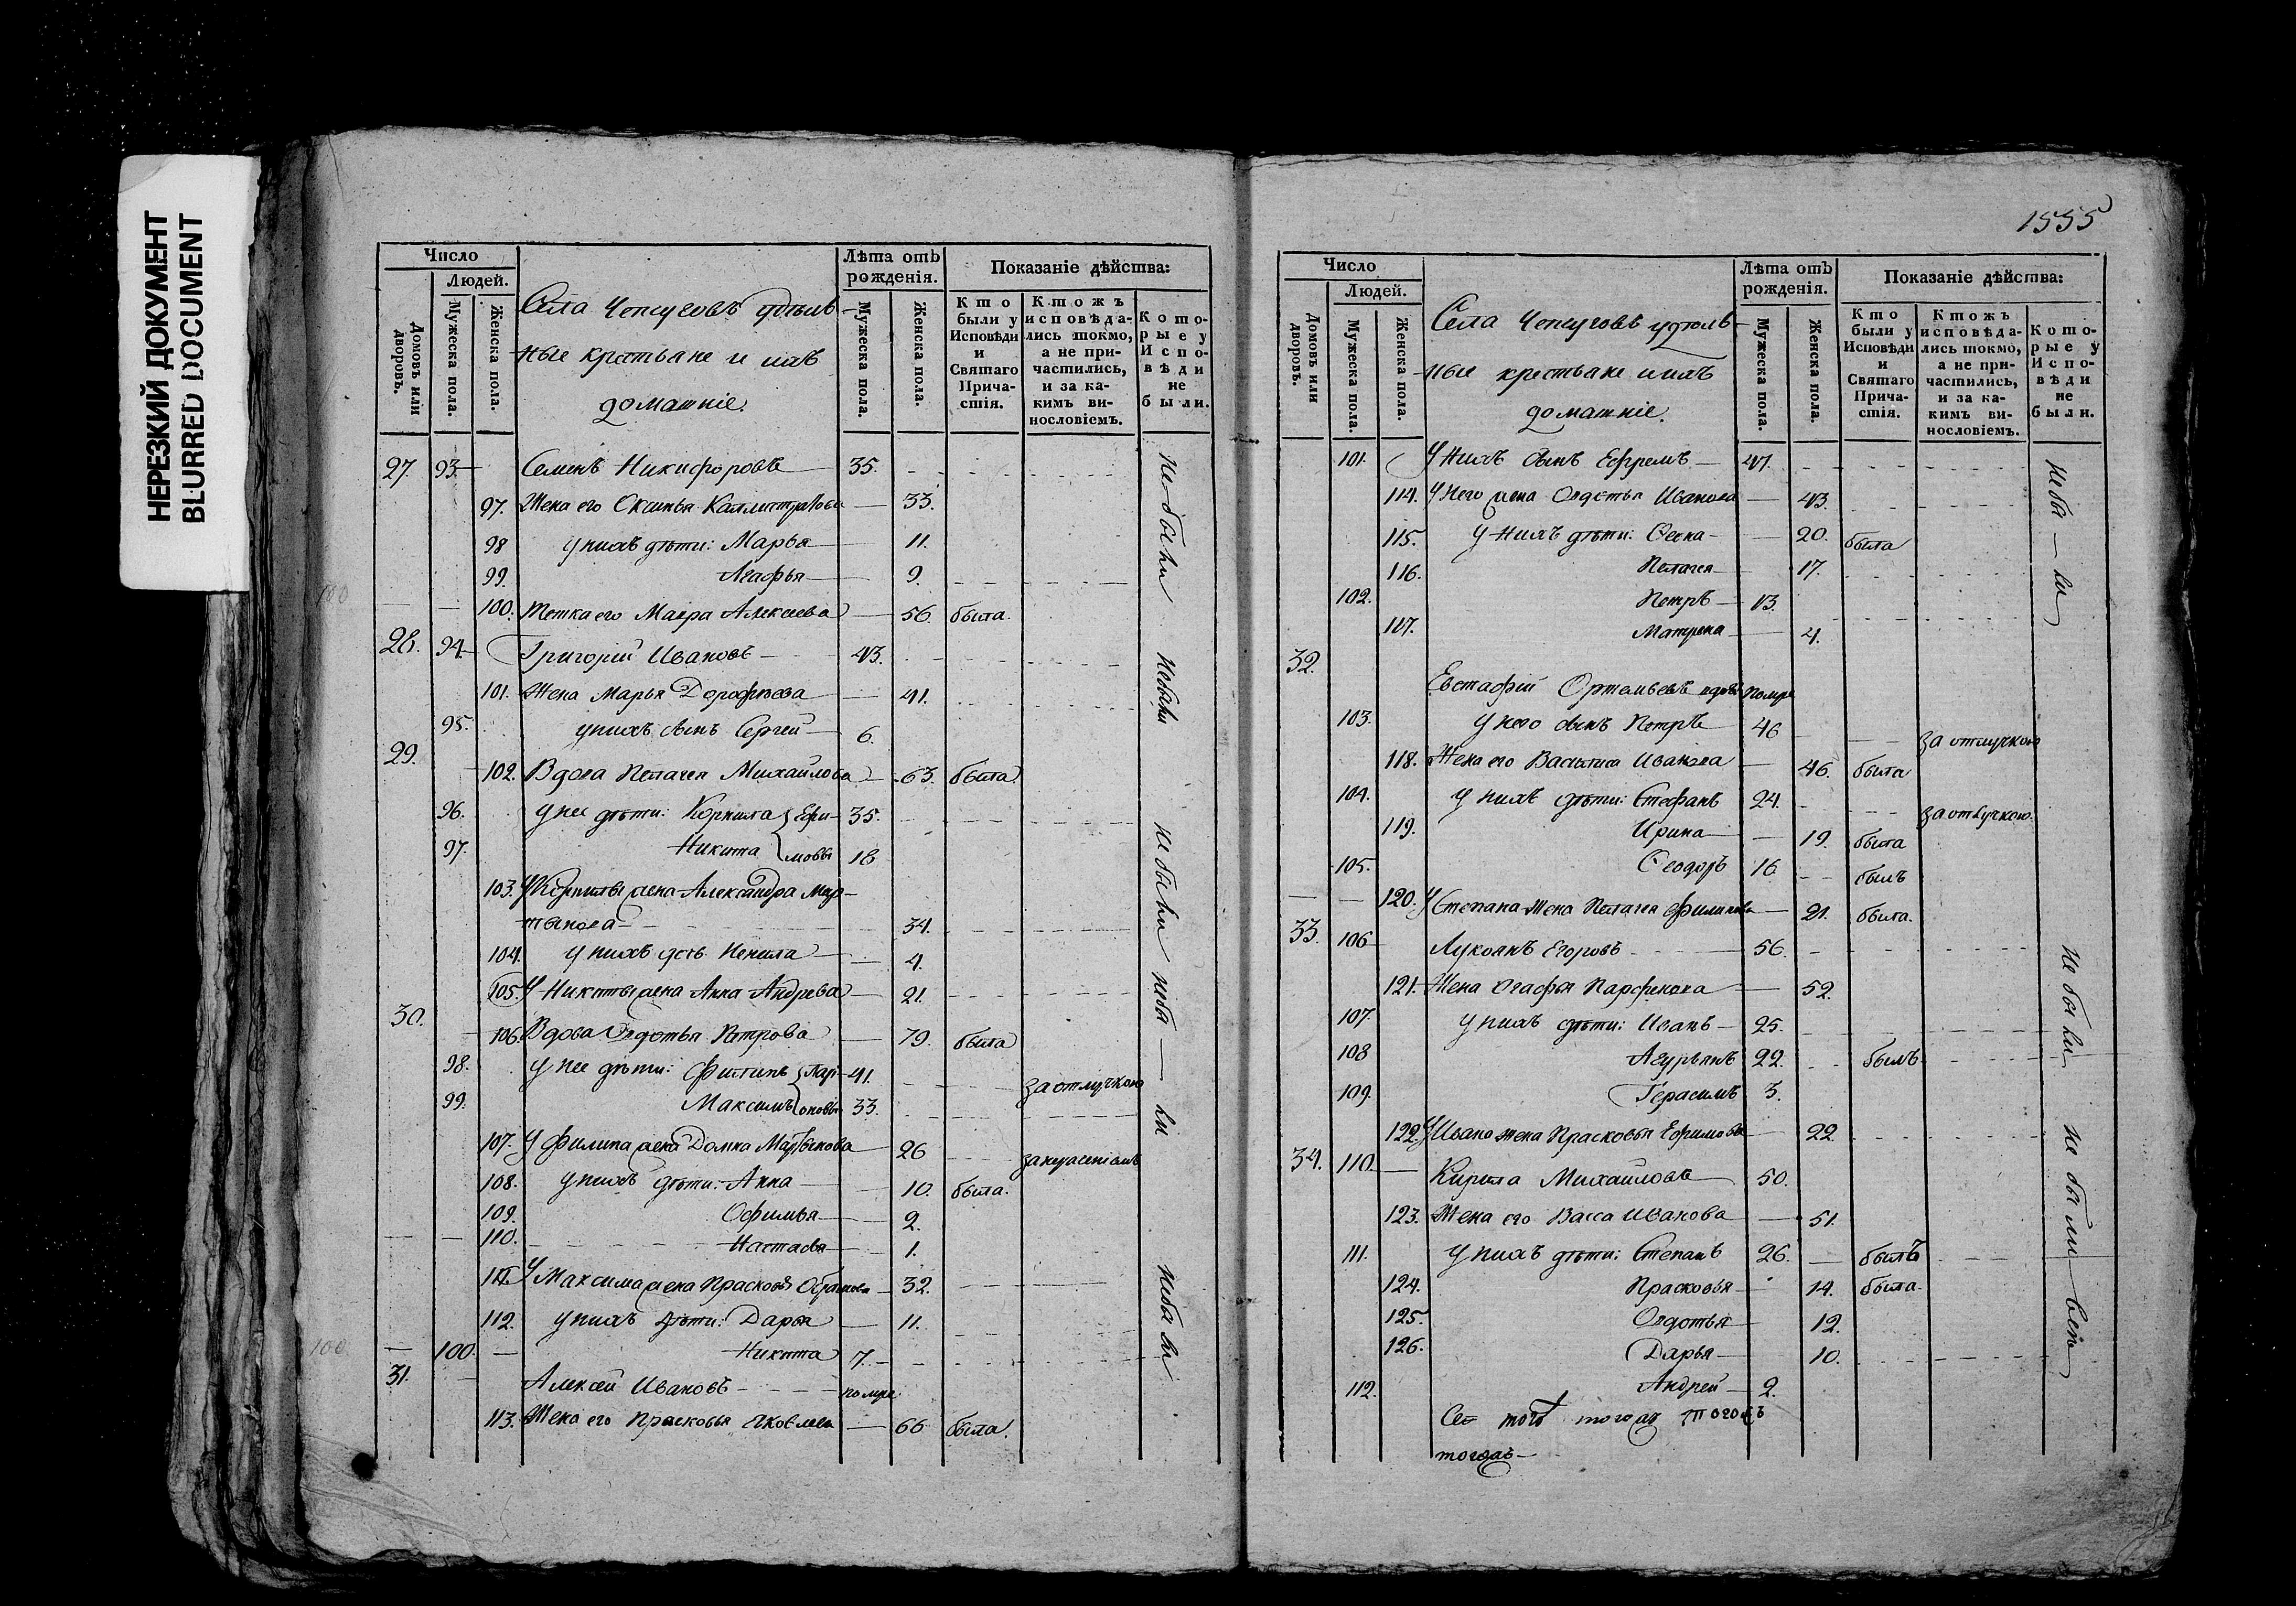 НЕРЕЗКИЙ ДОКУМЕНТ
BLURRED DOCUMENT
Число
Людей.
Домовъ или дворовъ.
Мужеска пола.
Женска пола.
Села Чепчуговъ удѣль-
ные крестьяне и ихъ
домашніе.
Лѣта отъ рожденія.
Мужеска пола.
Женска пола.
Показаніе дѣйства:
Кто были у Исповѣди и Святаго Причастія.
Ктожъ исповѣдались токмо, а не причастились, и за какимъ винословіемъ.
Которые у Исповѣди не были.
27. 93 Семенъ Никифоровъ 35.
97. Жена его Ксинья Каллистратова 33.
98 у нихъ дѣти: Марья 11.
99. Агафья 9.
не были
100. Тетка его Мавра Алексеева 56. была.
28. 94. Григорій Ивановъ 43.
101. Жена Марья Дорофѣева 41.
95. у нихъ сынъ Сергей 6.
небыли
29. 102. Вдова Пелагея Михайлова 63. была
96. у нее дѣти: Корнила Ефи- 35.
97. Никита мовы 18
103. У Корнилы жена Александра Мар-
тынова 34.
104. у нихъ дочь Ненила 4.
105. У Никиты жена Анна Андрева 21.
не были
30. 106. Вдова Овдотья Петрова 79. была
98. у нее дѣти: Филипъ Лар- 41. за отлучкою
99. Максимъ оновы 33.
107. У Филипа жена Домна Мартынова 26 за нераченіемъ
108. у нихъ дѣти: Анна 10. была.
109. Офимья 2.
110. Настасья 1.
111. У Максима жена Прасковья 32.
112. у нихъ дѣти: Дарья 11.
100. Никита 7.
небы-ли
31. Алексей Ивановъ помре
113. Жена его Прасковья Яковлева 66 была.
небыли
100
100.
1555
Число
Людей.
Домовъ или дворовъ.
Мужеска пола.
Женска пола.
Села Чепчуговъ удѣль-
ные крестьяне и ихъ
домашніе.
Лѣта отъ рожденія.
Мужеска пола.
Женска пола.
Показаніе дѣйства:
Кто были у Исповѣди и Святаго Причастія.
Ктожъ исповѣдались токмо, а не причастились, и за какимъ винословіемъ.
Которые у Исповѣди не были.
101. У Нихъ сынъ Ефремъ 47.
114. У Него жена Овдотья Иванова 43.
115. У Нихъ дѣти: Фекла 20. была
116. Пелагея 17.
102. Петръ 13.
117. Матрена 4.
небы-ли
32. Евстафій Ортемьевъ вдовъ помре
103. у него сынъ Петръ 46 за отлучкою
118. Жена его Василиса Иванова 46. была
104. у нихъ дѣти: Стефанъ 24. за отлучкою.
119. Ирина 19. была
105. Феодоръ 16. былъ
120. У Степана жена Пелагея Филипова 21. была.
33. 106 Лукоянъ Егоровъ 56.
121. Жена Огафья Парфенова 52.
107. у нихъ дѣти: Иванъ 25.
108 Агурьянъ 22. былъ
109. Герасимъ 3.
122. У Ивана жена Прасковья Ефимова 22.
небыли
34. 110. Кирила Михайловъ 50.
123. Жена его Васса Иванова 51.
111. у нихъ дѣти: Степанъ 26. былъ
124. Прасковья 14. была.
125. Овдотья 12.
126. Дарья 10.
112. Андрей 2.
не были